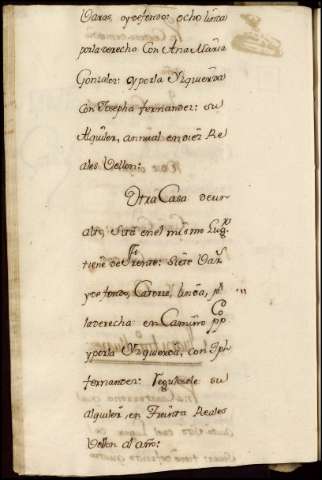 Varas, y defondo: ocho linda
por la derecha Con Ana Maria
Gonzalez: y por la Yzquierda
con Josepha fernandez: su
Alquiler, annual en diez Re
ales Vellon:
Otra Casa de un
alto, Sita en el mismo Lugr
tiene de Frente: Siete Vars
y defondo, Catorze, linda, pr
la derecha en Camino Co pp
y por la Yzquierda, con Jph
fernandez: regulosele su
alquiler, en Treinta Reales
Vellon al año: